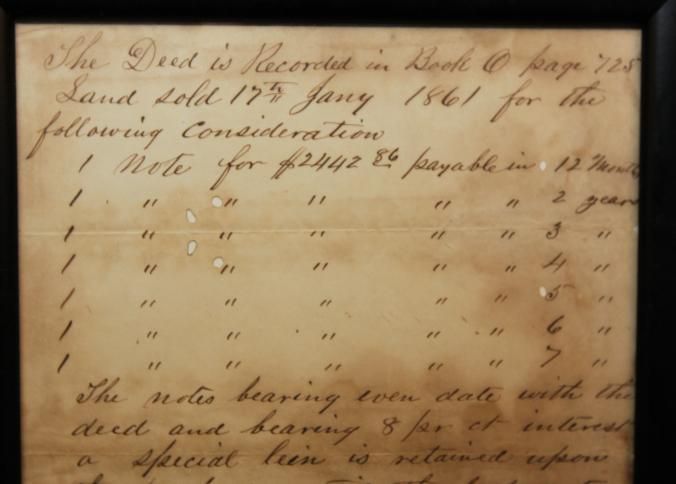 The Deed is Recorded in Book O page 725
Land sold 17th Jany 1861 for the
following Consideration
1 Note for $2442 86 payable in 12 Months
1 " " " " " 2 years
1 " " " " " 3 "
1 " " " " " 4 "
1 " " " " " 5 "
1 " " " " " 6 "
1 " " " " " 7 "
The notes bearing even date with the
deed and bearing 8 pr ct interest
a special lein is retained upon